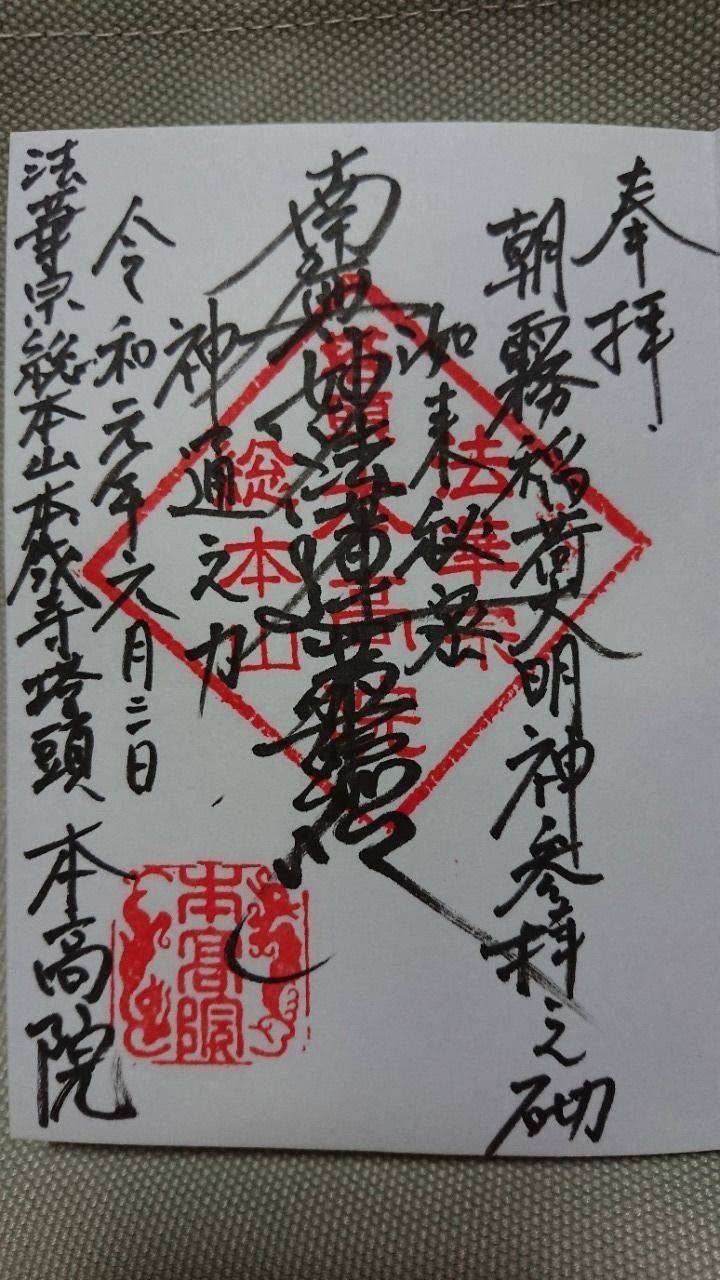 奉拝
朝霧稲荷大明神参拝之砌
如来秘密
南無妙法蓮華経
神通之力
令和元年六月二日
法華宗総本山本成寺塔頭 本高院
法華宗
本高院
総本山
本高院